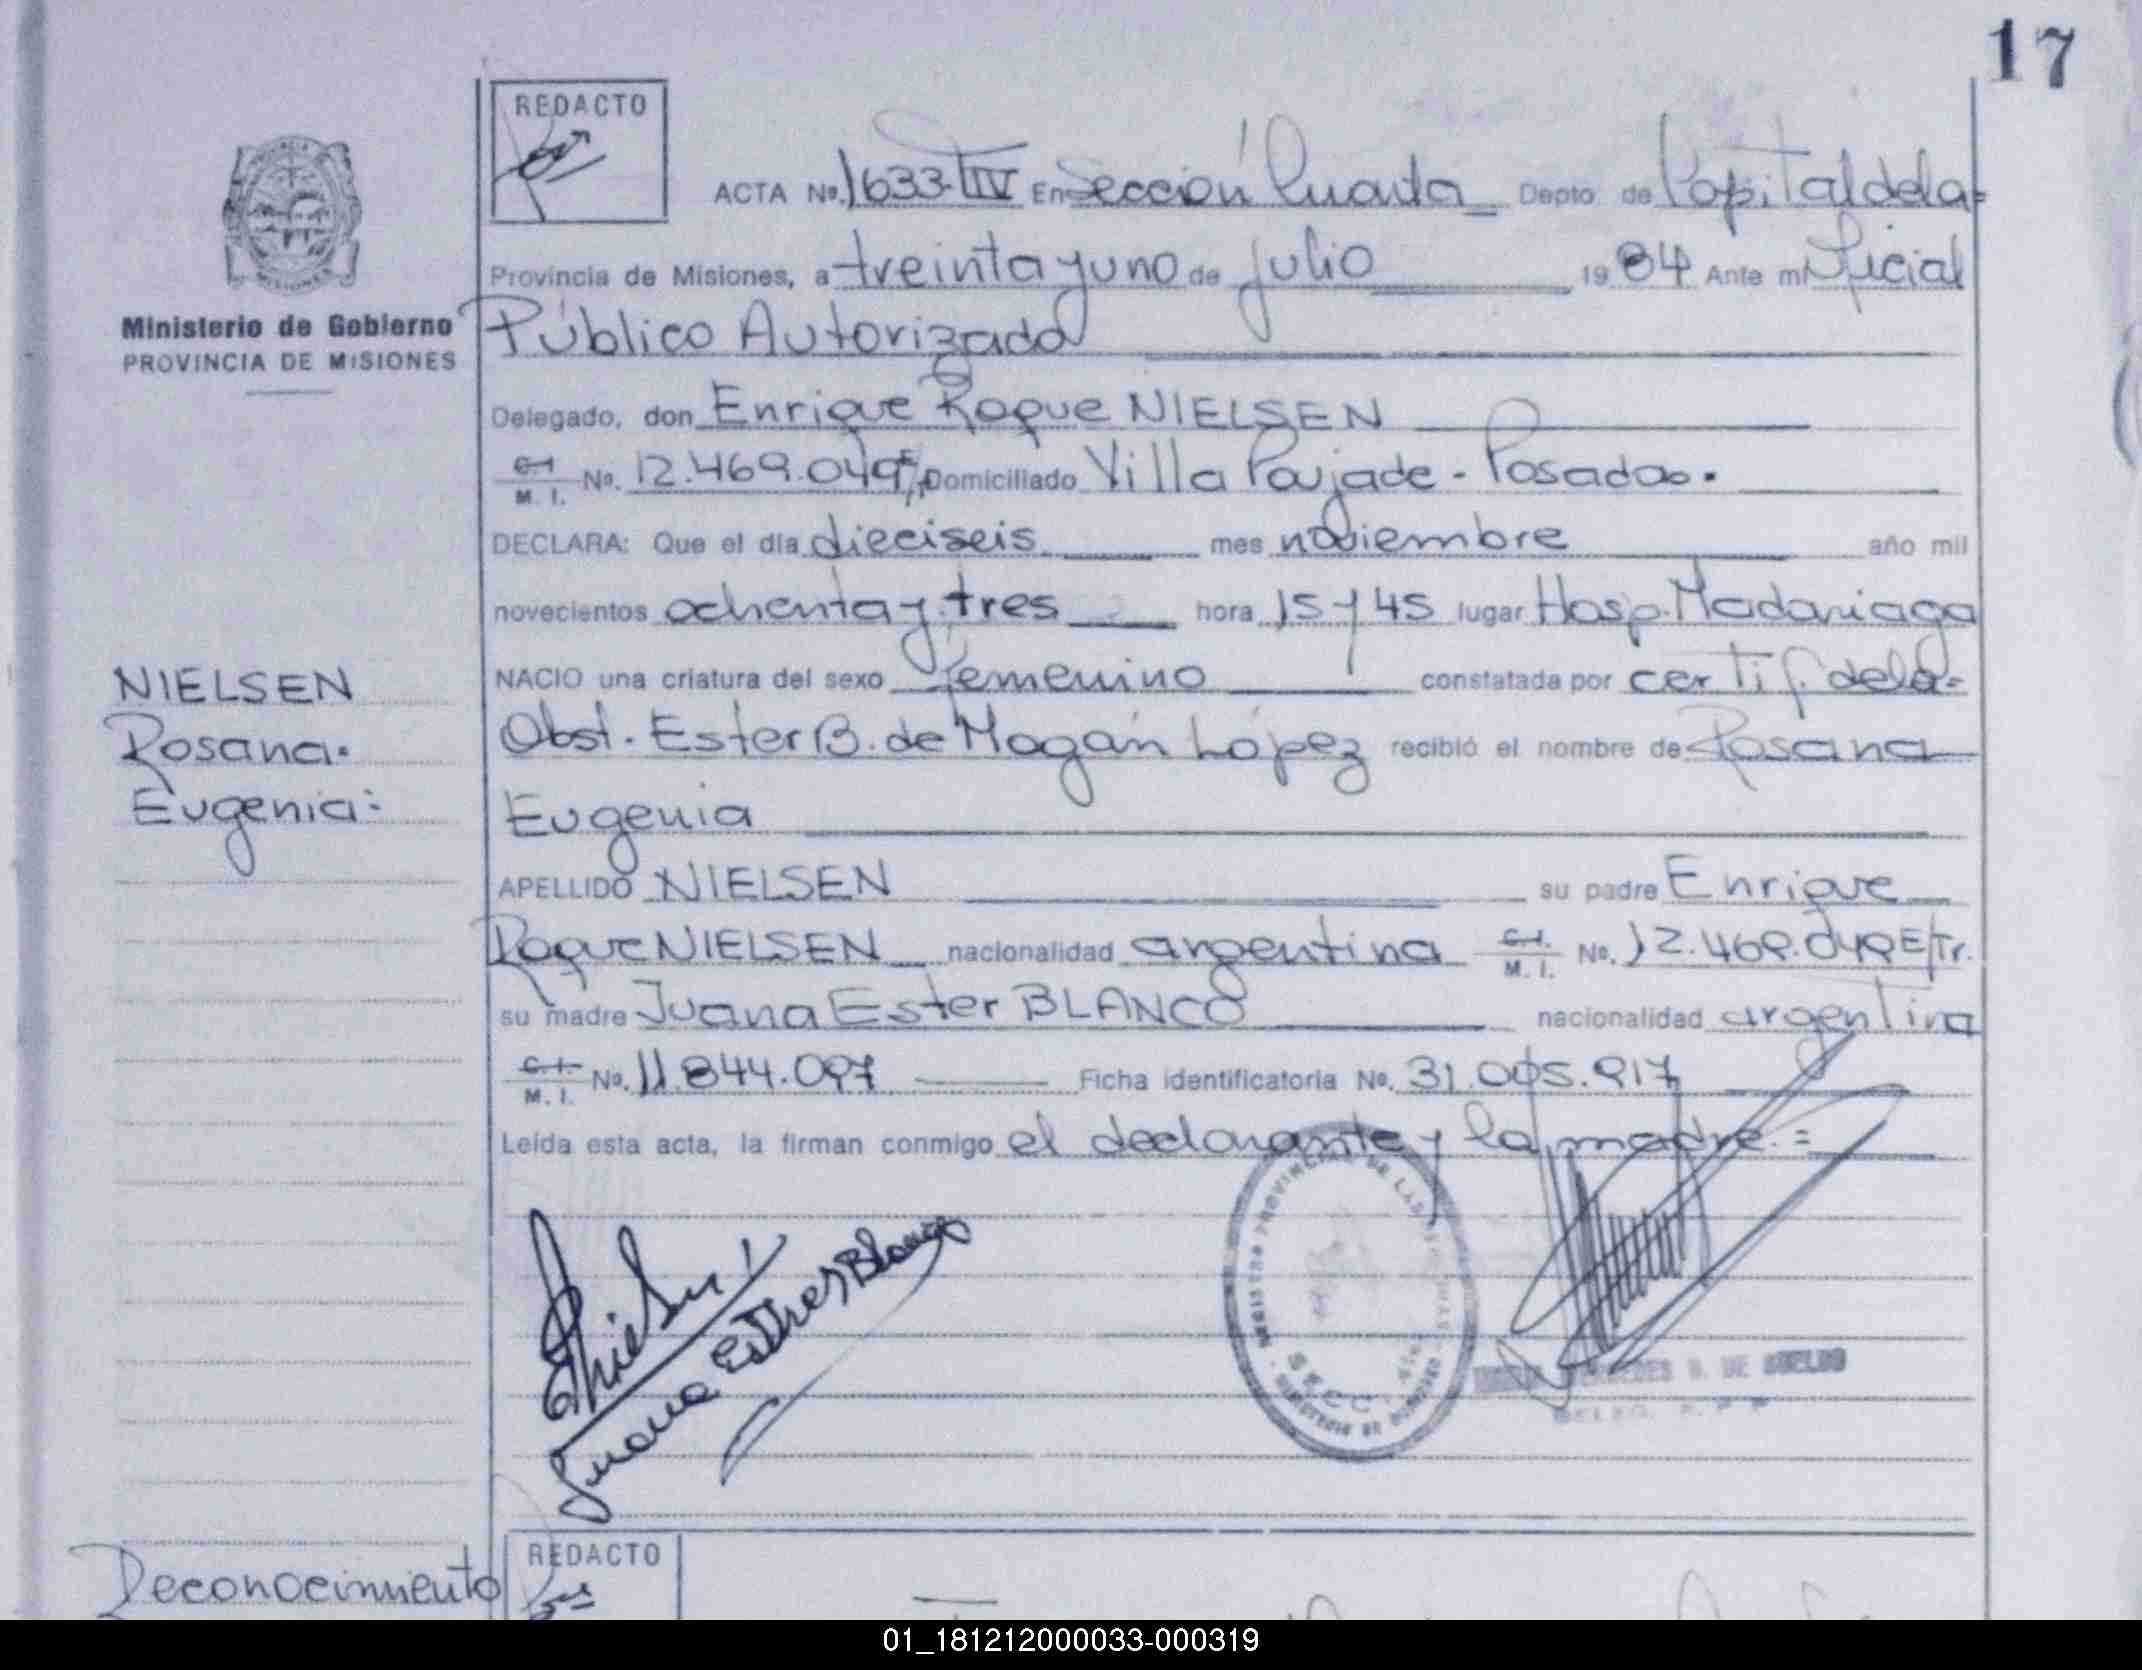 17
REDACTO
ACTA Nº. 1633-T IV En Sección Cuarta Depto. de Capital de la=
Provincia de Misiones, a treinta y uno de julio 1984 Ante mí Oficial
Ministerio de Gobierno
PROVINCIA DE MISIONES
Público Autorizado
Delegado, don Enrique Roque NIELSEN
C.I. M. I. Nº. 12.469.049 E/Tr. Domiciliado Villa Poujade - Posadas.
DECLARA: Que el día dieciseis mes noviembre año mil
novecientos ochenta y tres hora 15 y 45 lugar Hosp. Madariaga
NACIO una criatura del sexo femenino constatada por certif. de la=
NIELSEN
Rosana.
Eugenia:
Obst. Ester B. de Magán López recibió el nombre de Rosana
Eugenia
APELLIDO NIELSEN su padre Enrique
Roque NIELSEN nacionalidad argentina C.I. M. I. Nº. 12.469.049 E/Tr.
su madre Juana Ester BLANCO nacionalidad argentina
C.I. M. I. Nº. 11.844.097 Ficha identificatoria Nº. 31.005.917
Leída esta acta, la firman conmigo el declarante y la madre.=
Juana Esther Blanco
REGISTRO PROVINCIAL DE LAS PERSONAS
MINISTERIO DE GOBIERNO
SECC. 4ta
MERCEDES B. DE
Reconocimiento
REDACTO
01_181212000033-000319